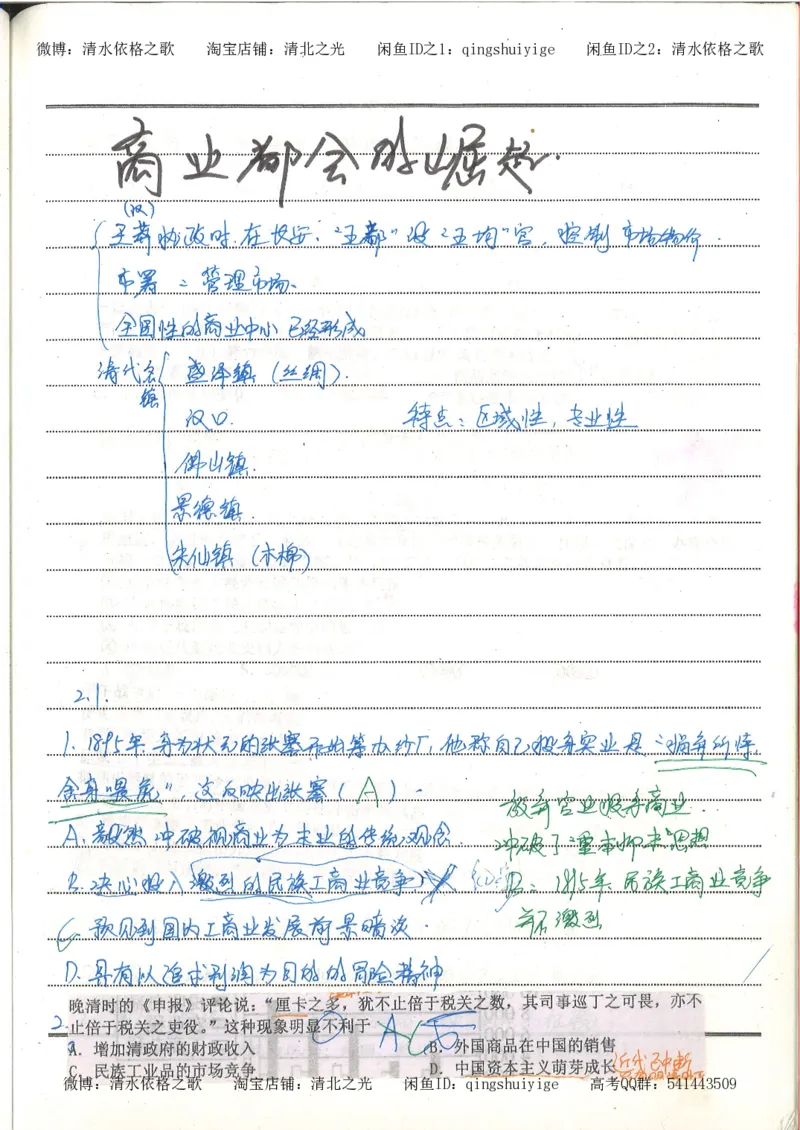 微博：清水依格之歌 淘宝店铺：清北之光 闲鱼ID之1：qingshuiyige 闲鱼ID之2：清水依格之歌
商业都会的崛起.
(汉)
王莽协政时.在长安、"五都"设"五均"官，控制市场物价.
市署：管理市场、
全国性的商业中心已经形成
清代名镇
盛泽镇（丝绸）.
汉口.
特点：区域性，专业性
佛山镇.
景德镇.
朱仙镇（木棉）
2.1.
1. 1895年，身为状元的张謇开始筹办纱厂，他称自己投身实业是"捐弃所恃，
舍身喂虎"，这反映出张謇（A）.
放弃官业投身商业.
A.毅然冲破视商业为末业的传统观念.
冲破了"重本抑末"思想
B.决心投入激烈的民族工商业竞争
B：1895年.民族工商业竞争
并不激烈
C.预见到国内工商业发展前景暗淡.
D.具有以追求利润为目的的冒险精神
晚清时的《申报》评论说："厘卡之多，犹不止倍于税关之数，其司事巡丁之可畏，亦不
2.止倍于税关之吏役。"这种现象明显不利于
A．增加清政府的财政收入 B．外国商品在中国的销售
C．民族工业品的市场竞争 D．中国资本主义萌芽成长
近代已中断
微博：清水依格之歌 淘宝店铺：清北之光 闲鱼ID：qingshuiyige 高考QQ群：541443509